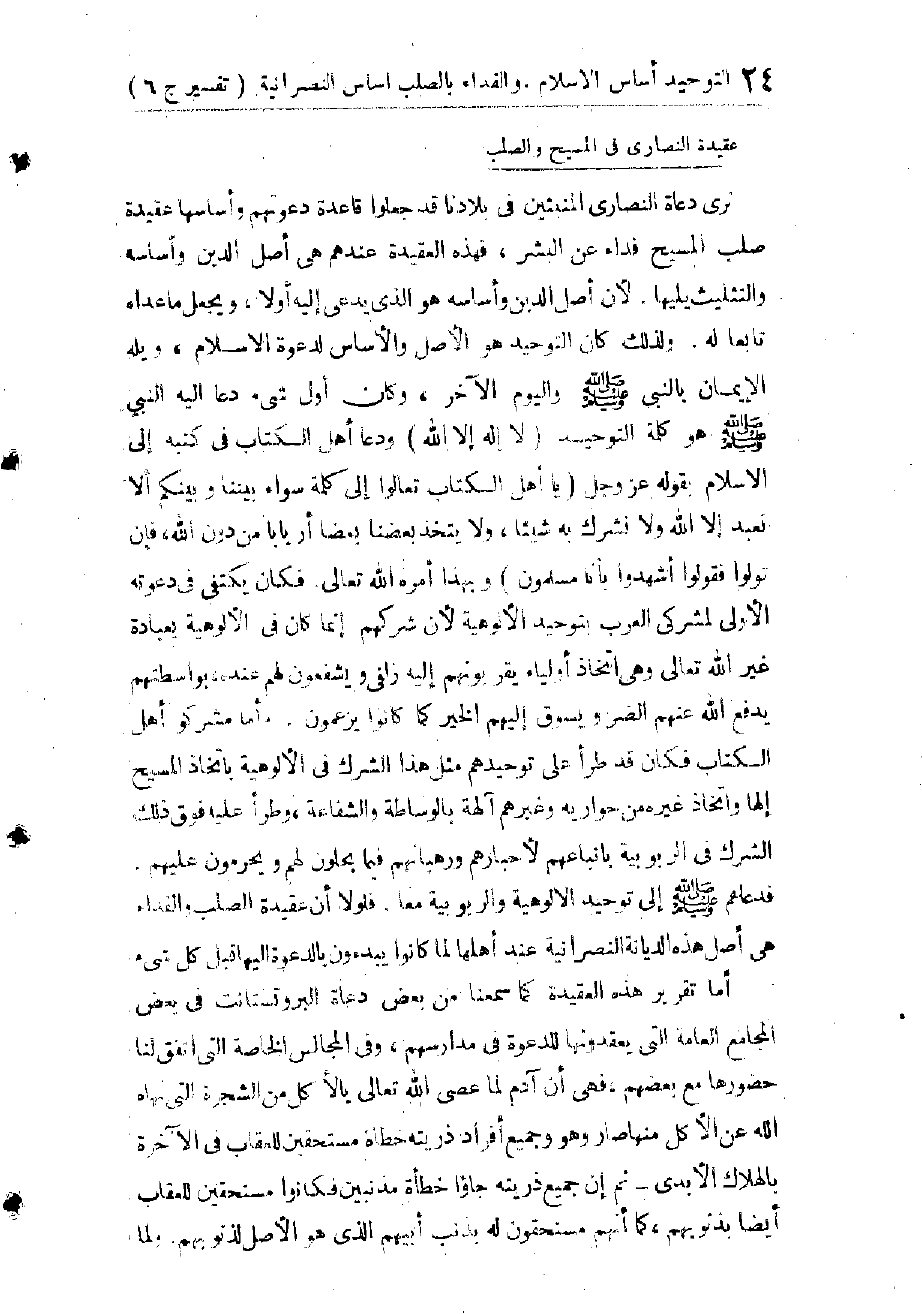 ٢٤ التوحيد أساس الاسلام . والفداء بالصلب اساس النصرانية ( تفسير ج ٦ )
عقيدة النصارى فى المسيح والصلب
نرى دعاة النصارى المنبثين فى بلادنا قد جعلوا قاعدة دعوتهم وأساسها عقيدة
صلب المسيح فداء عن البشر ، فهذه العقيدة عندهم هى أصل الدين وأساسه
والتثليث يليها . لأن أصل الدين وأساسه هو الذى يدعى إليه أولا ، ويجعل ماعداه
تابعا له . ولذلك كان التوحيد هو الأصل والأساس لدعوة الاسلام ، ويله
الإيمان بالنبى ﷺ واليوم الآخر ، وكان أول شىء دعا اليه النبي
ﷺ هو كلمة التوحيد ( لا إله إلا الله ) ودعا أهل الكتاب فى كتبه إلى
الاسلام بقوله عز وجل ( يا أهل الكتاب تعالوا إلى كلمة سواء بيننا وبينكم ألا
نعبد إلا الله ولا نشرك به شيئا ، ولا يتخذ بعضنا بعضا أربابا من دون الله، فإن
تولوا فقولوا أشهدوا بأنا مسلمون ) وبهذا أمره الله تعالى. فكان يكتفى فى دعوته
الأولى لمشركى العرب بتوحيد الألوهية لأن شركهم إنما كان فى الألوهية بعبادة
غير الله تعالى وهى اتخاذ أولياء يقربونهم إليه زلفى ويشفعون لهم عنده، بواسطتهم
يدفع الله عنهم الضر ويسوق إليهم الخير كما كانوا يزعمون . وأما مشركو أهل
الكتاب فكان قد طرأ على توحيدهم مثل هذا الشرك فى الألوهية باتخاذ المسيح
إلها واتخاذ غيره من حواريه وغيرهم آلهة بالوساطة والشفاعة ، وطرأ عليه فوق ذلك
الشرك فى الربوبية باتباعهم لأحبارهم ورهبانهم فيما يحلون لهم ويحرمون عليهم .
فدعاهم ﷺ إلى توحيد الالوهية والربوبية معا . فلولا أن عقيدة الصلب والفداء
هى أصل هذه الديانة النصرانية عند أهلها لما كانوا يبدءون بالدعوة اليها قبل كل شىء
أما تقرير هذه العقيدة كما سمعنا من بعض دعاة البروتستانت فى بعض
المجامع العامة التى يعقدونها للدعوة فى مدارسهم ، وفى المجالس الخاصة التى اتفق لنا
حضورها مع بعضهم ، فهى أن آدم لما عصى الله تعالى بالأكل من الشجرة التى نهاه
الله عن الأكل منها صار وهو وجميع أفراد ذريته خطاة مستحقين للعقاب فى الآخرة
بالهلاك الأبدى ـ ثم إن جميع ذريته جاؤا خطأة مذنبين فكانوا مستحقين للعقاب
أيضا بذنوبهم ، كما أنهم مستحقون له بذنب أبيهم الذى هو الأصل لذنوبهم. ولما